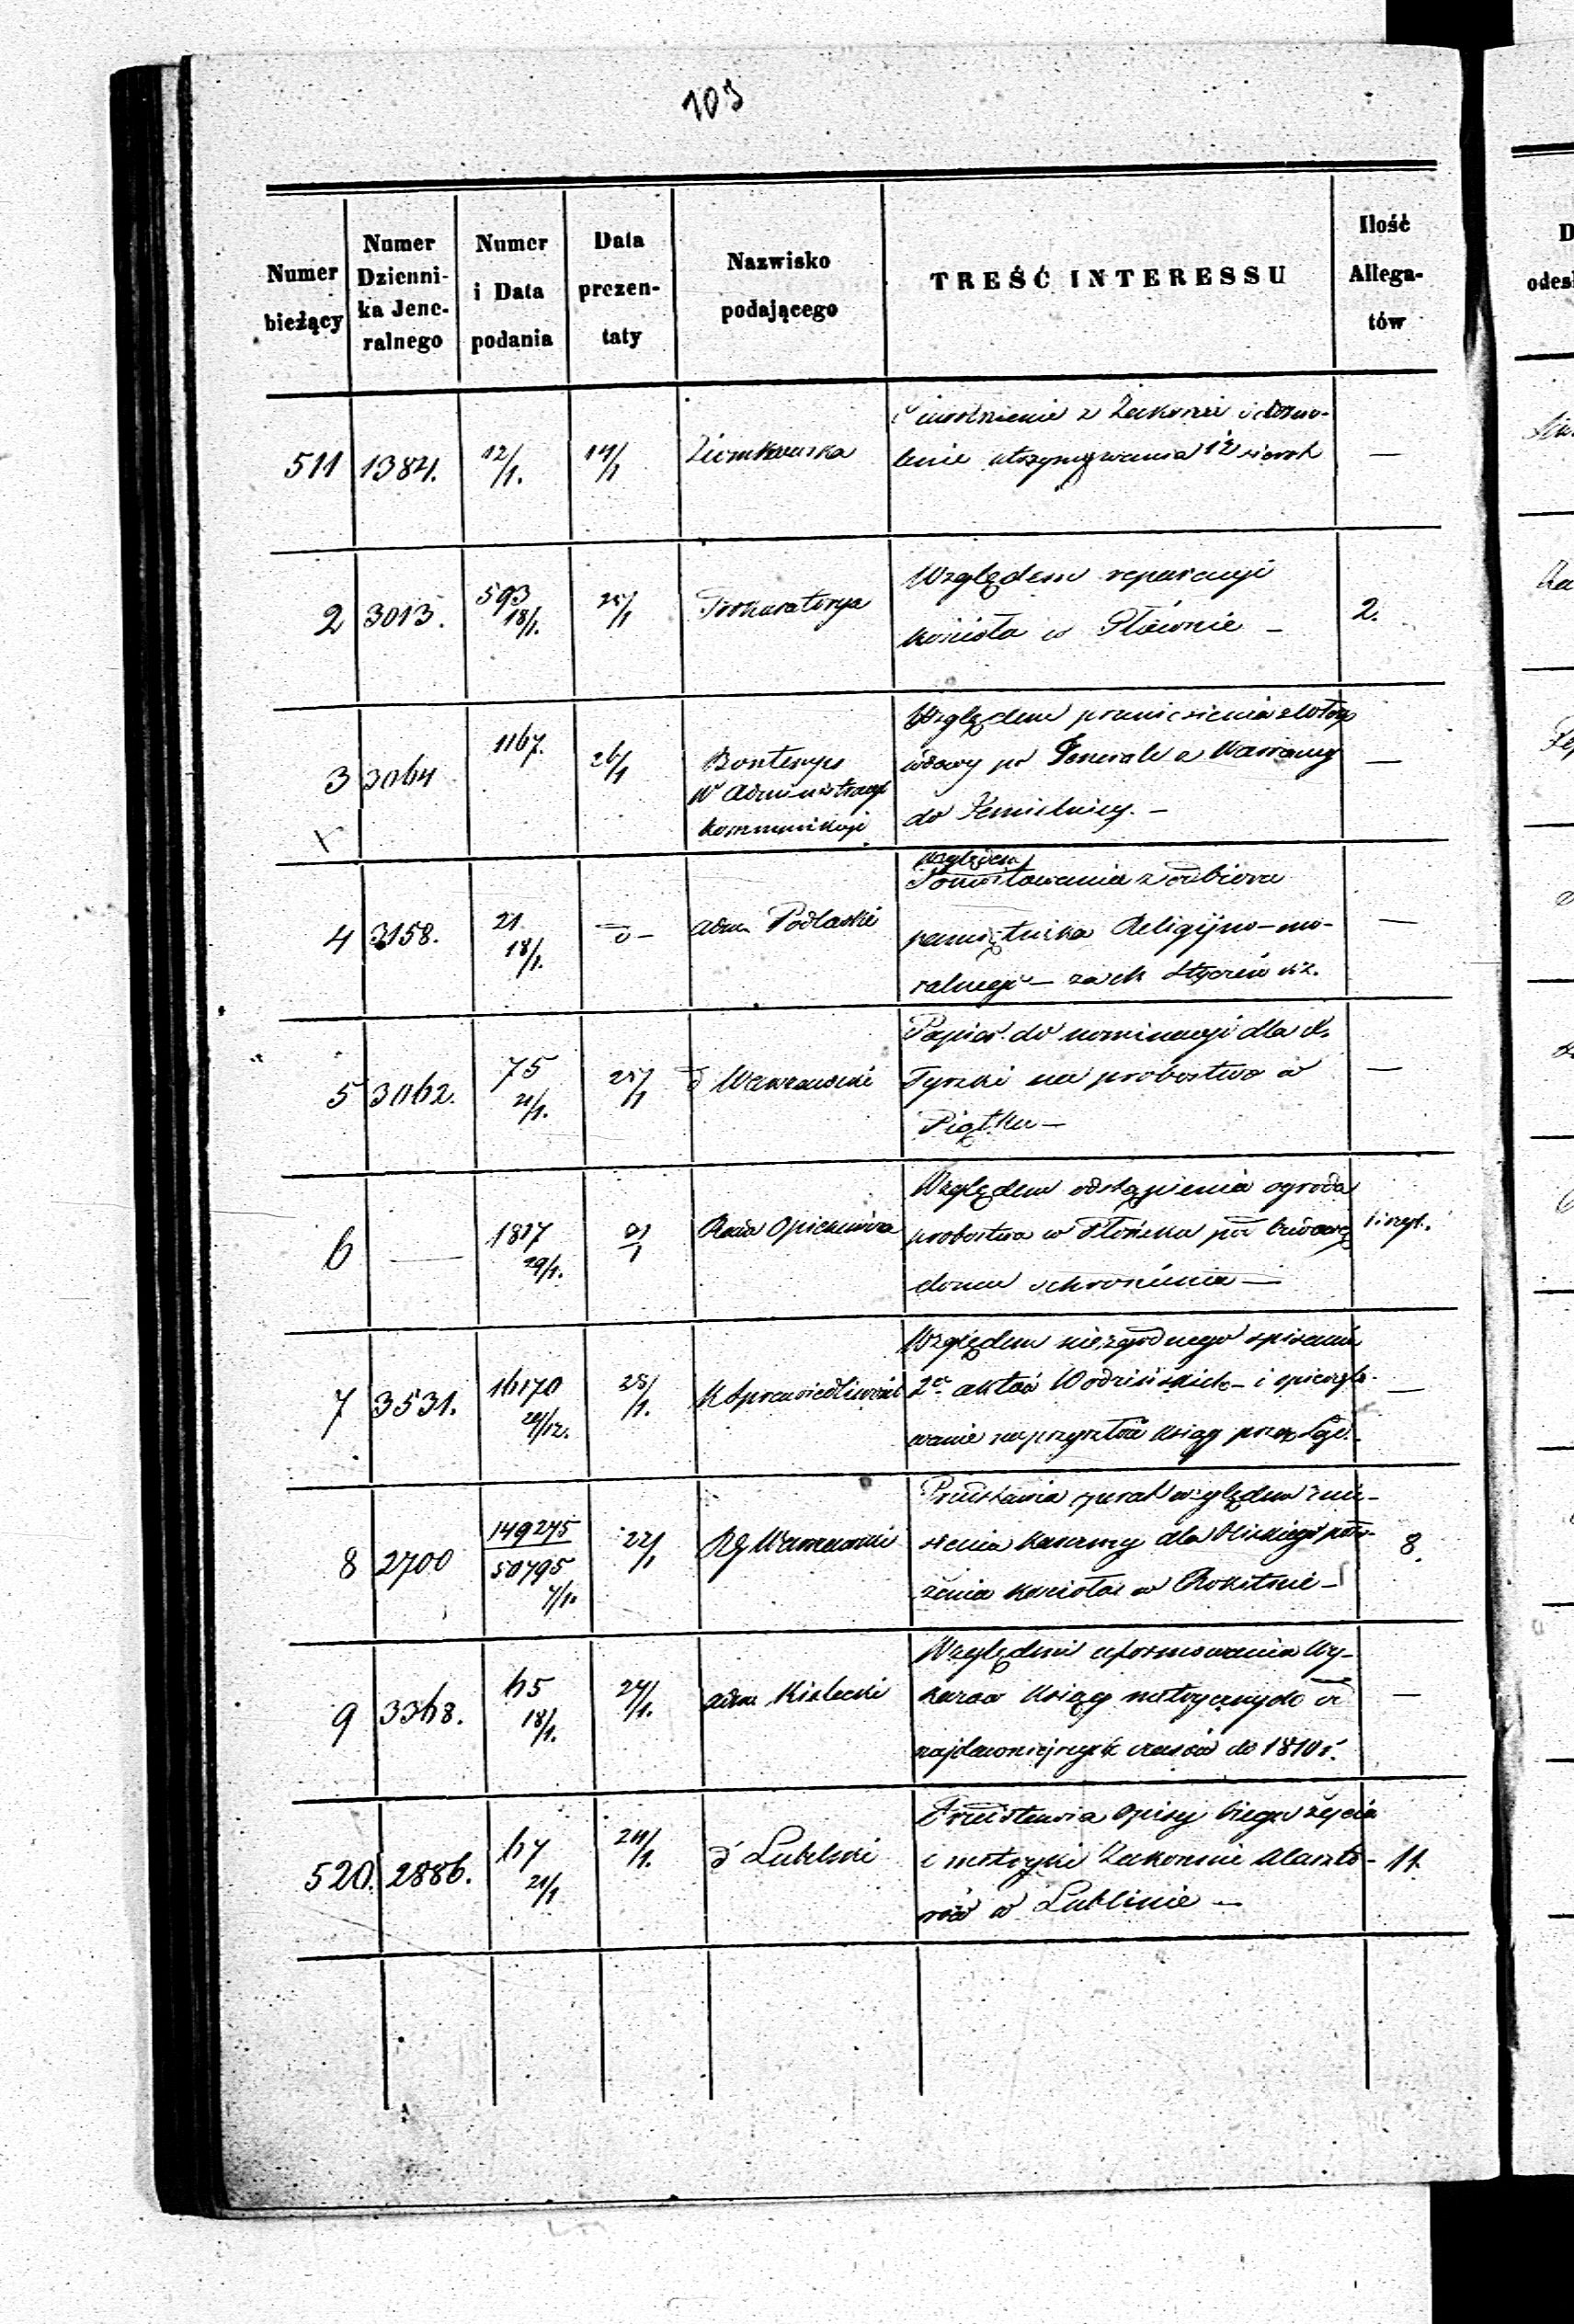 103
Numer bieżący | Numer Dzienni-ka Jene-ralnego | Numer i Data podania | Data prezen-taty | Nazwisko podającego | TREŚĆ INTERESSU | Ilość Allega-tów
511 | 1384. | 12/1. | 14/1 | Ziomkowska | uwolnienie z Zakonu i dozwo-
lenie utrzymywania 12 sierot | —
2 | 3013. | 593 18/1. | 25/1 | Prokuratorya | Względem reparacyi
kościoła w Pławnie — | 2.
3 | 3064 | 1167. | 26/1 | Bontemps
W Administracyi
kommunikacji | Względem przeniesienia zwłok
wdowy po Generale z Warszawy
do | —
4 | 3158. | 21 18/1. | — | adm. Podlaski | względem
Pokwitowania z odbioru
pamiętnika Religijno-mo-
ralnego — za Styczeń | —
5 | 3062. | 75 21/1. | 25/1 | d Warszawski | Papier do nominacyi dla X.
Tyszki na probostwo w
Piątku — | —
6 | — | 1817 29/1. | | Rada Opiekuńcza | Względem odstąpienia ogrodu
probostwa w Płońsku pod budowę
domu schronienia — |
7 | 3531. | 16170 29/12. | 28/1. | K Sprawiedliwości | Względem niezgodnego spisania
2ch aktów Wodzisławskich — i
wanie na przyszłość ksiąg przez | —
8 | 2700 | 149275 50795 7/1. | 22/1 | RG Warszawski | Przedstawia względem znie-
sienia karczmy dla bliskiego poło-
żenia kościoła w Rokitnie — | 8.
9 | 3368. | 65 18/1. | 27/1. | adm. Kielecki | Względem uformowania wy-
kazów ksiąg metrycznych od
najdawniejszych czasów do 1810 r. | —
520. | 2886. | 67 21/1 | 24/1. | d Lubelski | Przedstawia opisy biegu życia
i metryki Zakonnic klaszto-
rów w Lublinie — | 11.